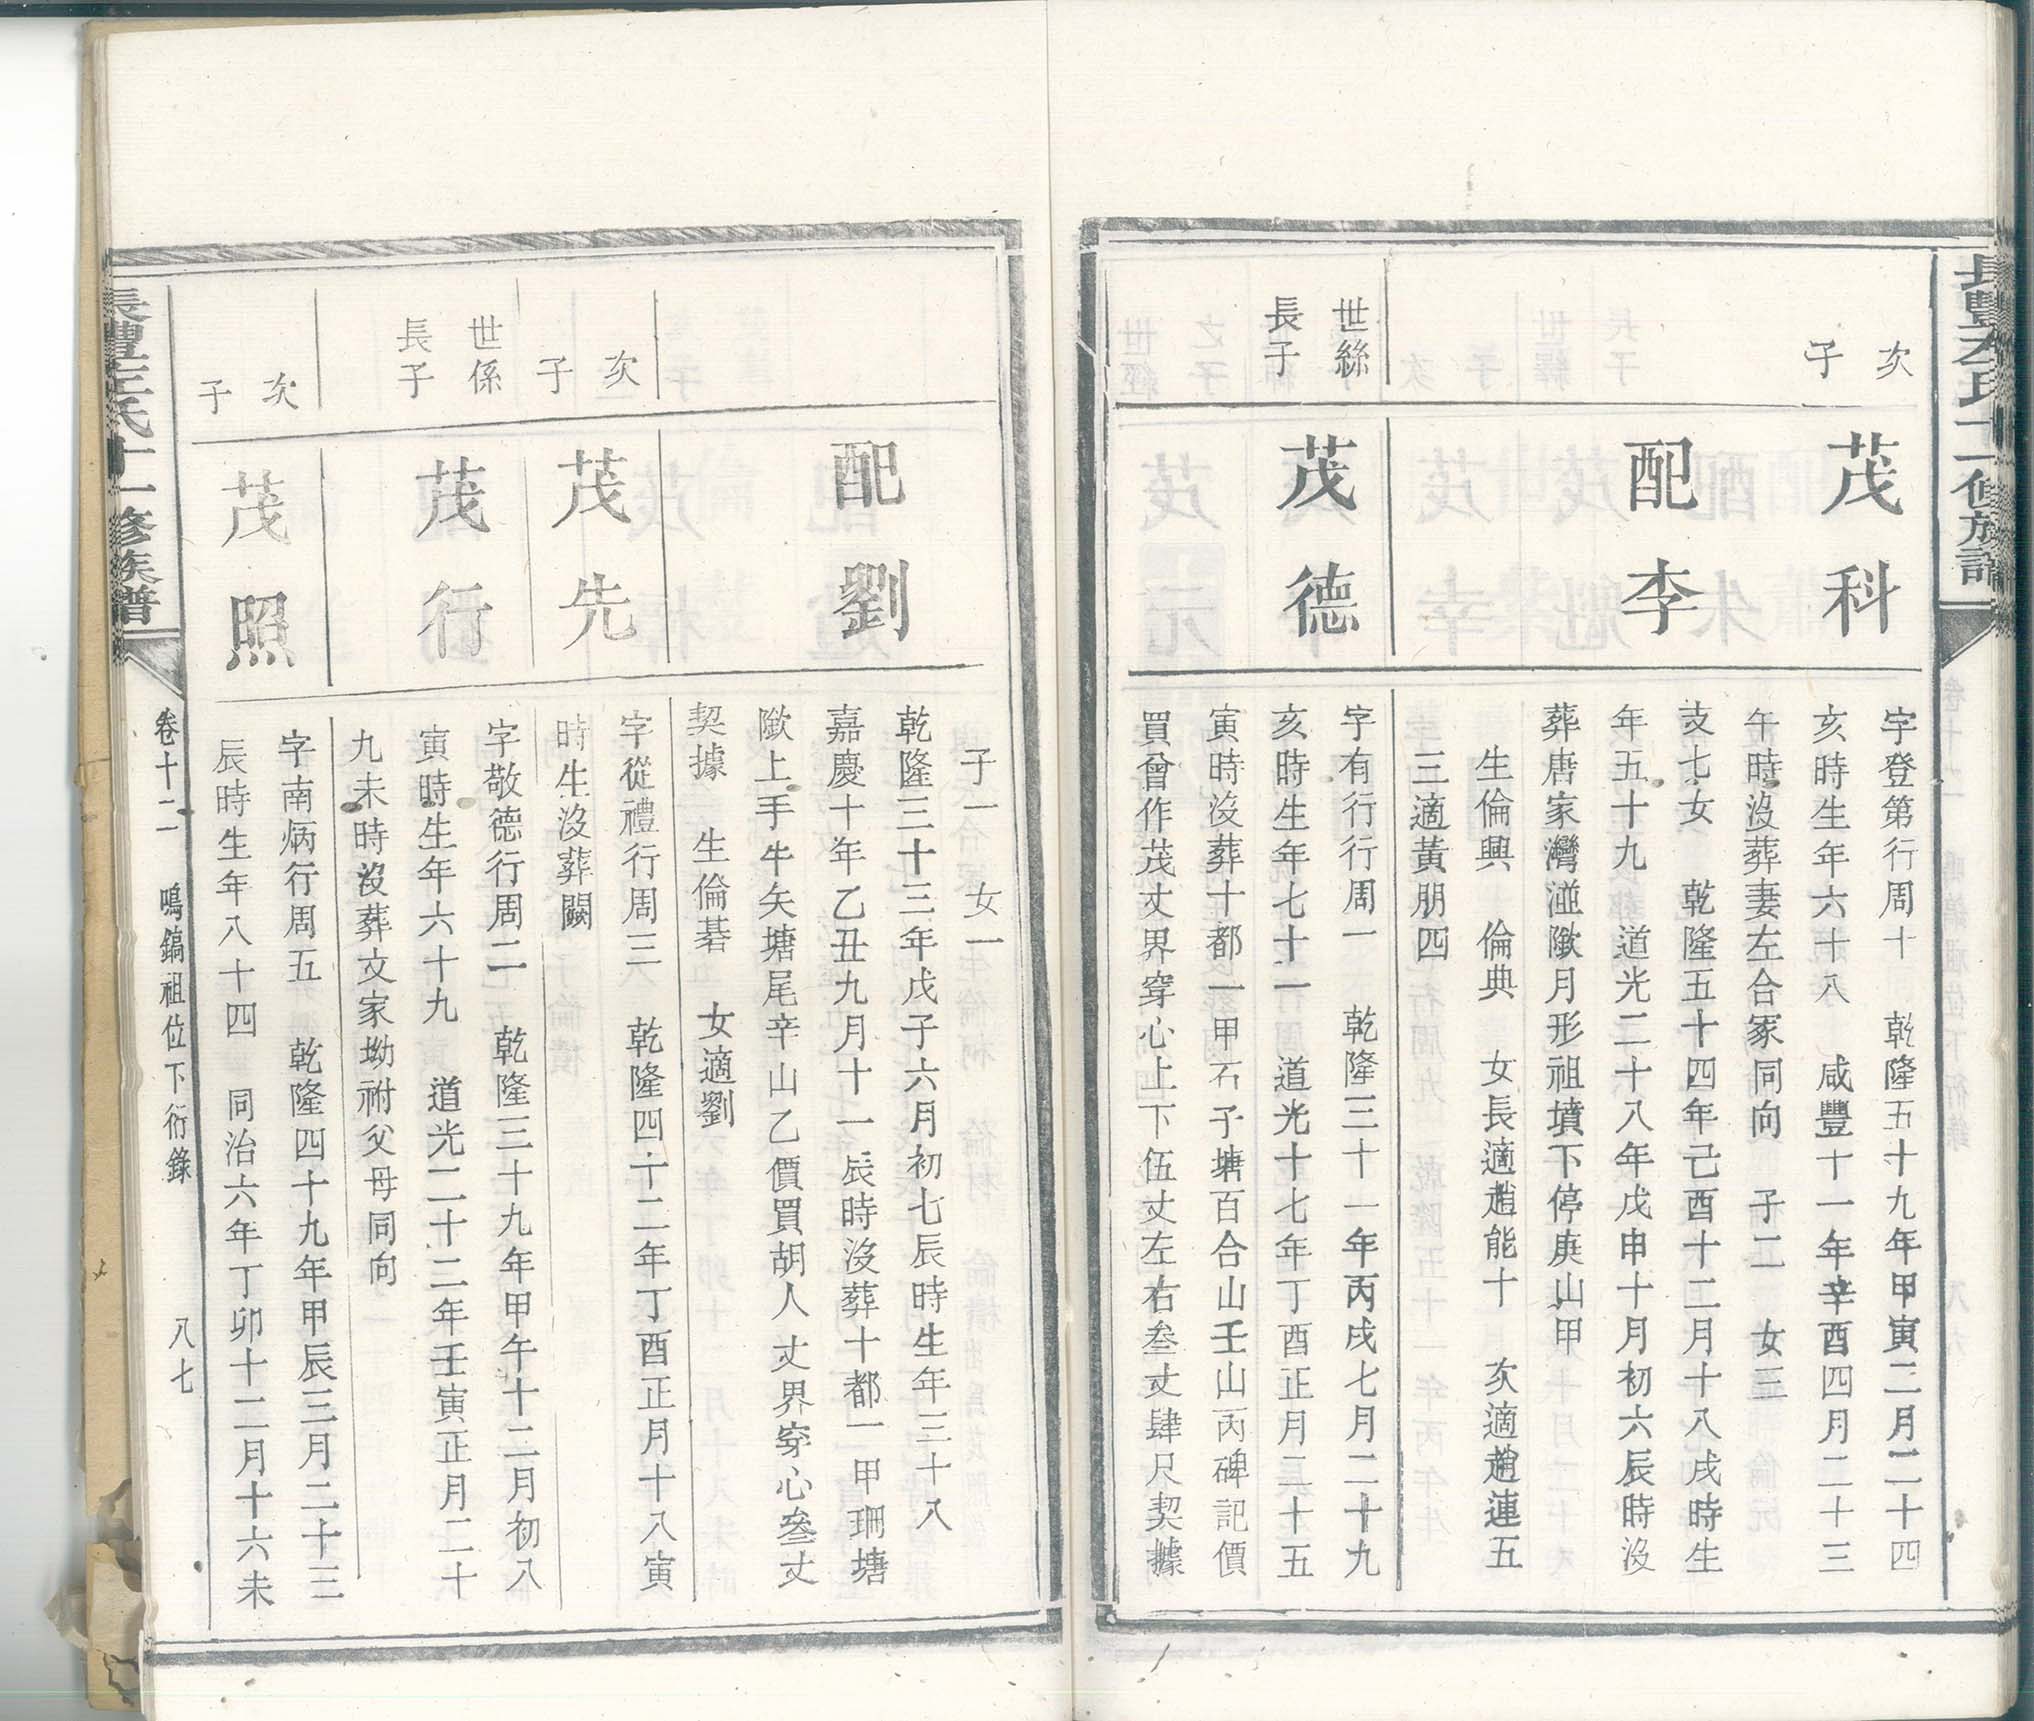 次
子
茂科
字登第行周十　乾隆五十九年甲寅二月二十四
亥時生年六十八　咸豐十一年辛酉四月二十三
午時沒葬妻左合冢同向　子二　女三
配李
支七女　乾隆五十四年己酉十二月十八戌時生
年五十九　道光二十八年戊申十月初六辰時沒
葬唐家灣湴歟月形祖墳下停庚山甲
生倫興　倫典　女長適趙能十　次適趙連五
三適黃朋四
世絲
長子
茂德
字有行行周一　乾隆三十一年丙戌七月二十九
亥時生年七十二　道光十七年丁酉正月二十五
寅時沒葬十都一甲石子塘百合山壬山丙碑記價
買曾作茂丈界穿心上下伍丈左右叁丈肆尺契據
配劉
子一　女一
乾隆三十三年戊子六月初七辰時生年三十八
嘉慶十年乙丑九月十一辰時沒葬十都一甲珊塘
歟上手牛矢塘尾辛山乙價買胡人丈界穿心叁丈
契據　生倫碁　女適劉
次
子
茂先
字從禮行周三　乾隆四十二年丁酉正月十八寅
時生沒葬闕
世係
長子
茂行
字敬德行周二　乾隆三十九年甲午十二月初八
寅時生年六十九　道光二十二年壬寅正月二十
九未時沒葬文家坳祔父母同向
次
子
茂照
字南炳行周五　乾隆四十九年甲辰三月二十三
辰時生年八十四　同治六年丁卯十二月十六未
卷十二　鳴鎬祖位下衍錄　八七